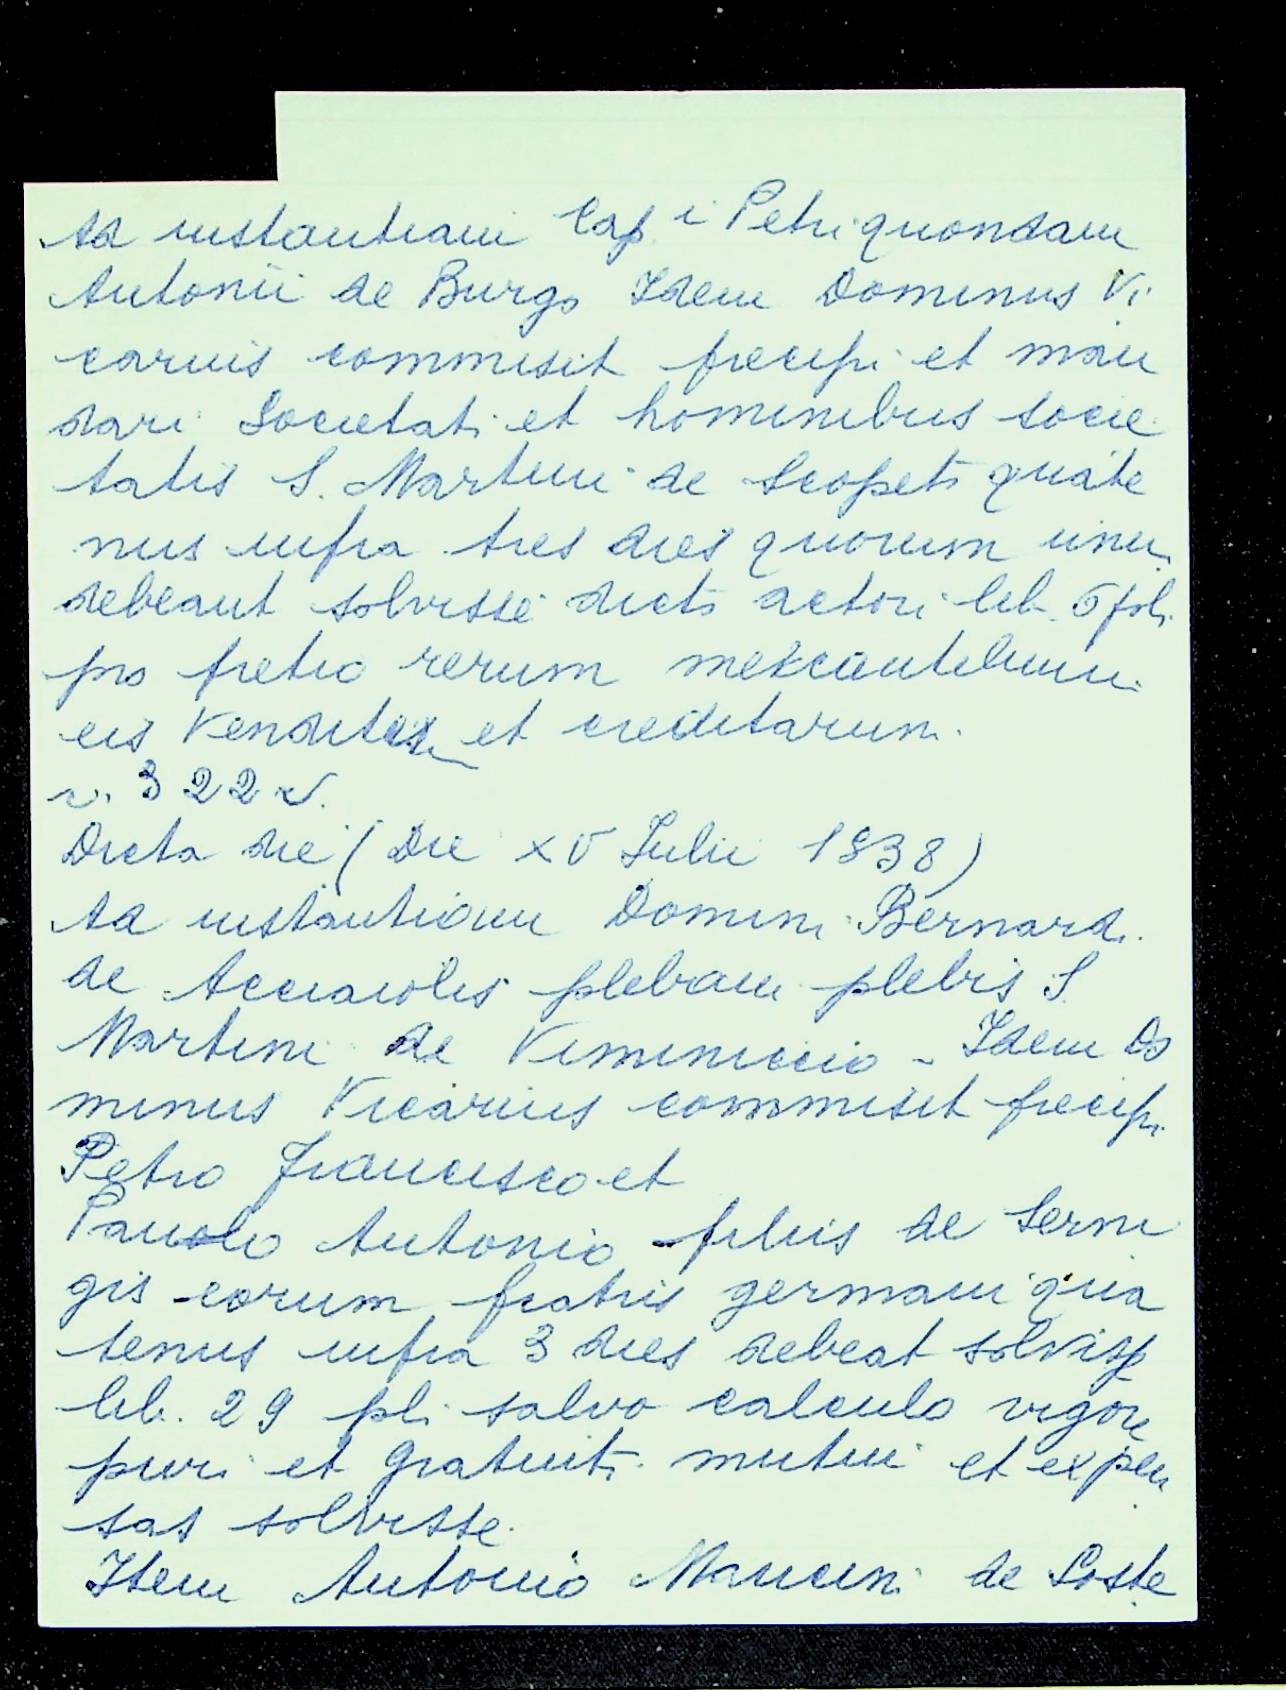 Ad instantiam Cap i Petri quondam
Antonii de Burgo Idem Dominus Vi
carius commisit precipi et man
dari Societati et hominibus socie
tatis S. Martini de Scopeto quate
nus infra tres dies quorum unu
debeant solvisse dicto actori lib. 6 pli.
pro pretio rerum mercantilium
eis Venditar et creditarum.
v. 322 v.
Dicta die (Die XV Julii 1838)
Ad instantiam Domini Bernardi
de Acciaiolis plebani plebis S
Martini de Viminiccio - Idem Do
minus Vicarius commisit precipi
Petro Francisco et
Paulo Antonio filiis de Serni
gis eorum fratris germani qua
tenus infra 3 dies debeat solviss
lib. 29 pli salvo calculo vigore
puri et gratuiti mutui et expen
sas solvisse.
Item Antonio Mancini de Soste